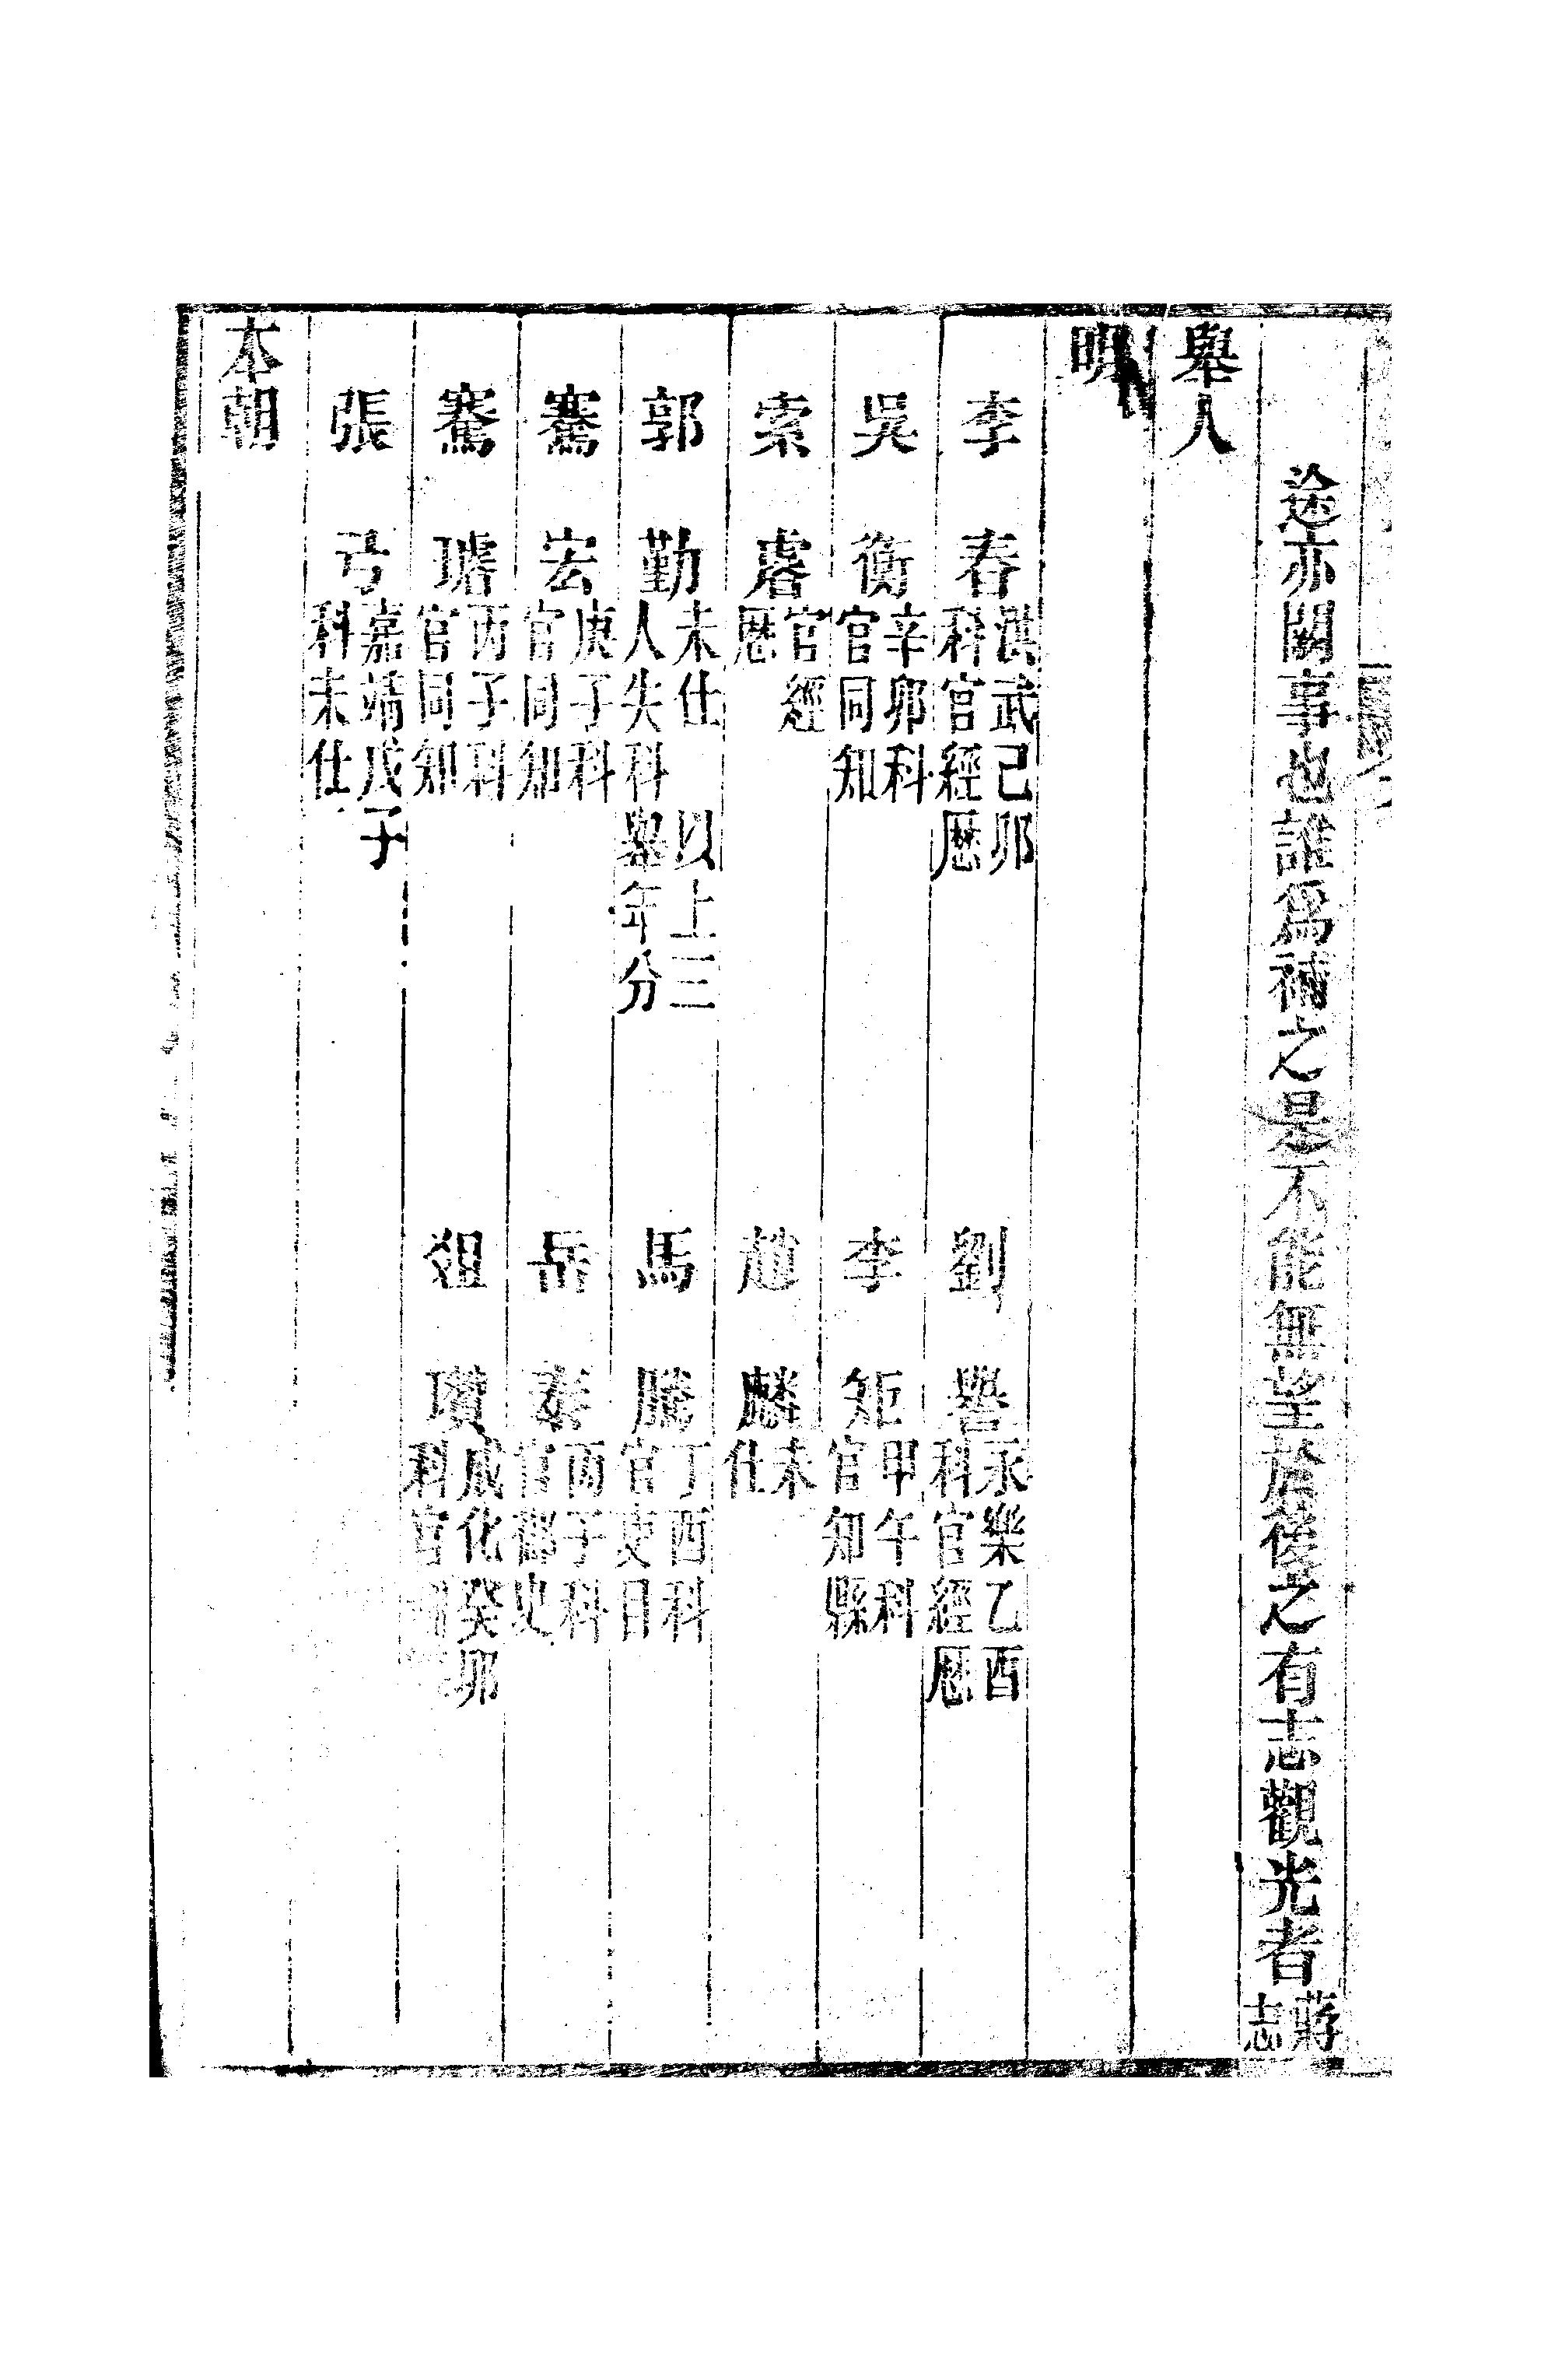 途亦闕事也誰爲補之是不能無望於後之有志觀光者蔣志
舉人
明
李春洪武己卯科官經歷
劉譽永樂乙酉科官經歷
吳衡辛卯科官同知
李矩甲午科官知縣
索㢒官經歷
趙麟未仕
郭勤未仕 以上三人失科舉年分
馬騰丁酉科官吏目
騫宏庚子科官同知
岳泰丙子科官都史
騫璿丙子科官同知
狙瓚成化癸卯科官
張弓嘉靖戊子科未仕
本朝